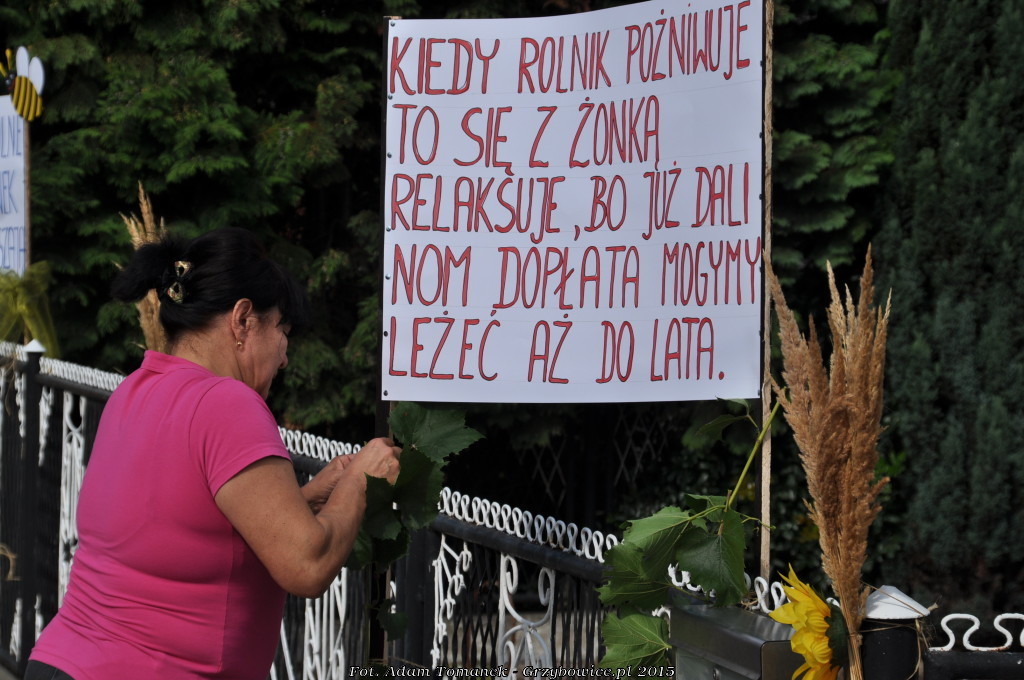 KIEDY ROLNIK POŻNIWUJE
TO SIĘ Z ŻONKĄ
RELAKSUJE, BO JUŻ DALI
NOM DOPŁATA MOGYMY
LEŻEĆ AŻ DO LATA.
Fot. Adam Tomanek - Grzybowice.pl 2015